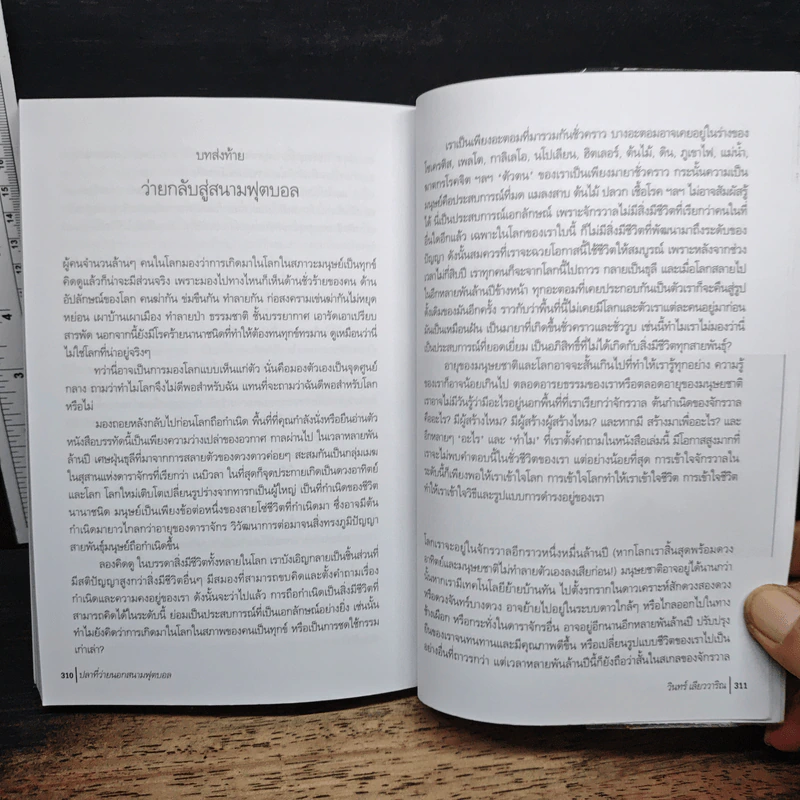 บทส่งท้าย
ว่ายกลับสู่สนามฟุตบอล
ผู้คนจำนวนล้านๆ คนในโลกมองว่าการเกิดมาในโลกในสภาวะมนุษย์เป็นทุกข์
คิดดูแล้วก็น่าจะมีส่วนจริง เพราะมองไปทางไหนก็เห็นด้านชั่วร้ายของคน ด้าน
อัปลักษณ์ของโลก คนฆ่ากัน ข่มขืนกัน ทำลายกัน ก่อสงครามเข่นฆ่ากันไม่หยุด
หย่อน เผาบ้านเผาเมือง ทำลายป่า ธรรมชาติ ชั้นบรรยากาศ เอารัดเอาเปรียบ
สารพัด นอกจากนี้ยังมีโรคร้ายนานาชนิดที่ทำให้ต้องทนทุกข์ทรมาน ดูเหมือนว่านี่
ไม่ใช่โลกที่น่าอยู่จริงๆ
ทว่านี่อาจเป็นการมองโลกแบบเห็นแก่ตัว นั่นคือมองตัวเองเป็นจุดศูนย์
กลาง ถามว่าทำไมโลกจึงไม่ดีพอสำหรับฉัน แทนที่จะถามว่าฉันดีพอสำหรับโลก
หรือไม่
มองถอยหลังกลับไปก่อนโลกถือกำเนิด พื้นที่ที่คุณกำลังนั่งหรือยืนอ่านตัว
หนังสือบรรทัดนี้เป็นเพียงความว่างเปล่าของอวกาศ กาลผ่านไป ในเวลาหลายพัน
ล้านปี เศษฝุ่นธุลีที่มาจากการสลายตัวของดวงดาวค่อยๆ สะสมกันเป็นกลุ่มเมฆ
ในสุสานแห่งดาราจักรที่เรียกว่า เนบิวลา ในที่สุดก็จุดประกายเกิดเป็นดวงอาทิตย์
และโลก โลกใหม่เติบโตเปลี่ยนรูปร่างจากทารกเป็นผู้ใหญ่ เป็นที่กำเนิดของชีวิต
นานาชนิด มนุษย์เป็นเพียงข้อต่อหนึ่งของสายโซ่ชีวิตที่กำเนิดมา ซึ่งอาจมีต้น
กำเนิดมายาวไกลกว่าอายุของดาราจักร วิวัฒนาการต่อมาจนสิ่งทรงภูมิปัญญา
สายพันธุ์มนุษย์ถือกำเนิดขึ้น
ลองคิดดู ในบรรดาสิ่งมีชีวิตทั้งหลายในโลก เราบังเอิญกลายเป็นชิ้นส่วนที่
มีสติปัญญาสูงกว่าสิ่งมีชีวิตอื่นๆ มีสมองที่สามารถขบคิดและตั้งคำถามเรื่อง
กำเนิดและความคงอยู่ของเรา ดังนั้นจะว่าไปแล้ว การถือกำเนิดเป็นสิ่งมีชีวิตที่
สามารถคิดได้ในระดับนี้ ย่อมเป็นประสบการณ์ที่เป็นเอกลักษณ์อย่างยิ่ง เช่นนั้น
ทำไมยังคิดว่าการเกิดมาในโลกในสภาพของคนเป็นทุกข์ หรือเป็นการชดใช้กรรม
เก่าเล่า?
310 ปลาที่ว่ายนอกสนามฟุตบอล
เราเป็นเพียงอะตอมที่มารวมกันชั่วคราว บางอะตอมอาจเคยอยู่ในร่างของ
โซเครติส, เพลโต, กาลิเลโอ, นโปเลียน, ฮิตเลอร์, ต้นไม้, ดิน, ภูเขาไฟ, แม่น้ำ,
ฆาตกรโรคจิต ฯลฯ 'ตัวตน' ของเราเป็นเพียงมายาชั่วคราว กระนั้นความเป็น
มนุษย์คือประสบการณ์ที่มด แมลงสาบ ต้นไม้ ปลวก เชื้อโรค ฯลฯ ไม่อาจสัมผัสรู้
ได้ นี่เป็นประสบการณ์เอกลักษณ์ เพราะจักรวาลไม่มีสิ่งมีชีวิตที่เรียกว่าคนในที่
อื่นใดอีกแล้ว เฉพาะในโลกของเราใบนี้ ก็ไม่มีสิ่งมีชีวิตที่พัฒนามาถึงระดับของ
ปัญญา ดังนั้นสมควรที่เราจะฉวยโอกาสนี้ใช้ชีวิตให้สมบูรณ์ เพราะหลังจากช่วง
เวลาไม่กี่สิบปี เราทุกคนก็จะจากโลกนี้ไปถาวร กลายเป็นธุลี และเมื่อโลกสลายไป
ในอีกหลายพันล้านปีข้างหน้า ทุกอะตอมที่เคยประกอบกันเป็นตัวเราก็จะคืนสู่รูป
ดั้งเดิมของมันอีกครั้ง ราวกับว่าพื้นที่นี้ไม่เคยมีโลกและตัวเราแต่ละคนอยู่มาก่อน
มันเป็นเหมือนฝัน เป็นมายาที่เกิดขึ้นชั่วคราวและชั่ววูบ เช่นนี้ทำไมเราไม่มองว่านี่
เป็นประสบการณ์ที่ยอดเยี่ยม เป็นอภิสิทธิ์ที่ไม่ได้เกิดกับสิ่งมีชีวิตทุกสายพันธุ์?
อายุของมนุษยชาติและโลกอาจจะสั้นเกินไปที่ทำให้เรารู้ทุกอย่าง ความรู้
ของเราก็อาจน้อยเกินไป ตลอดอารยธรรมของเราหรือตลอดอายุของมนุษยชาติ
เราอาจไม่มีวันรู้ว่ามีอะไรอยู่นอกพื้นที่ที่เราเรียกว่าจักรวาล ต้นกำเนิดของจักรวาล
คืออะไร? มีผู้สร้างไหม? มีผู้สร้างผู้สร้างไหม? และหากมี สร้างมาเพื่ออะไร? และ
อีกหลายๆ 'อะไร' และ 'ทำไม' ที่เราตั้งคำถามในหนังสือเล่มนี้ มีโอกาสสูงมากที่
เราจะไม่พบคำตอบนี้ในชั่วชีวิตของเรา แต่อย่างน้อยที่สุด การเข้าใจจักรวาลใน
ระดับนี้ก็เพียงพอให้เราเข้าใจโลก การเข้าใจโลกทำให้เราเข้าใจชีวิต การเข้าใจชีวิต
ทำให้เราเข้าใจวิถีและรูปแบบการดำรงอยู่ของเรา
โลกเราจะอยู่ในจักรวาลอีกราวหนึ่งหมื่นล้านปี (หากโลกเราสิ้นสุดพร้อมดวง
อาทิตย์และมนุษยชาติไม่ทำลายตัวเองลงเสียก่อน!) มนุษยชาติอาจอยู่ได้นานกว่า
นั้นหากเรามีเทคโนโลยีย้ายบ้านทัน ไปตั้งรกรากในดาวเคราะห์สักดวงสองดวง
หรือดวงจันทร์บางดวง อาจย้ายไปอยู่ในระบบดาวใกล้ๆ หรือไกลออกไปในทาง
ช้างเผือก หรือกระทั่งในดาราจักรอื่น อาจอยู่อีกนานอีกหลายพันล้านปี ปรับปรุง
ยีนของเราจนทนทานและมีคุณภาพดีขึ้น หรือเปลี่ยนรูปแบบชีวิตของเราไปเป็น
อย่างอื่นที่ถาวรกว่า แต่เวลาหลายพันล้านปีนี้ก็ยังถือว่าสั้นในสเกลของจักรวาล
วินทร์ เลียววาริณ 311